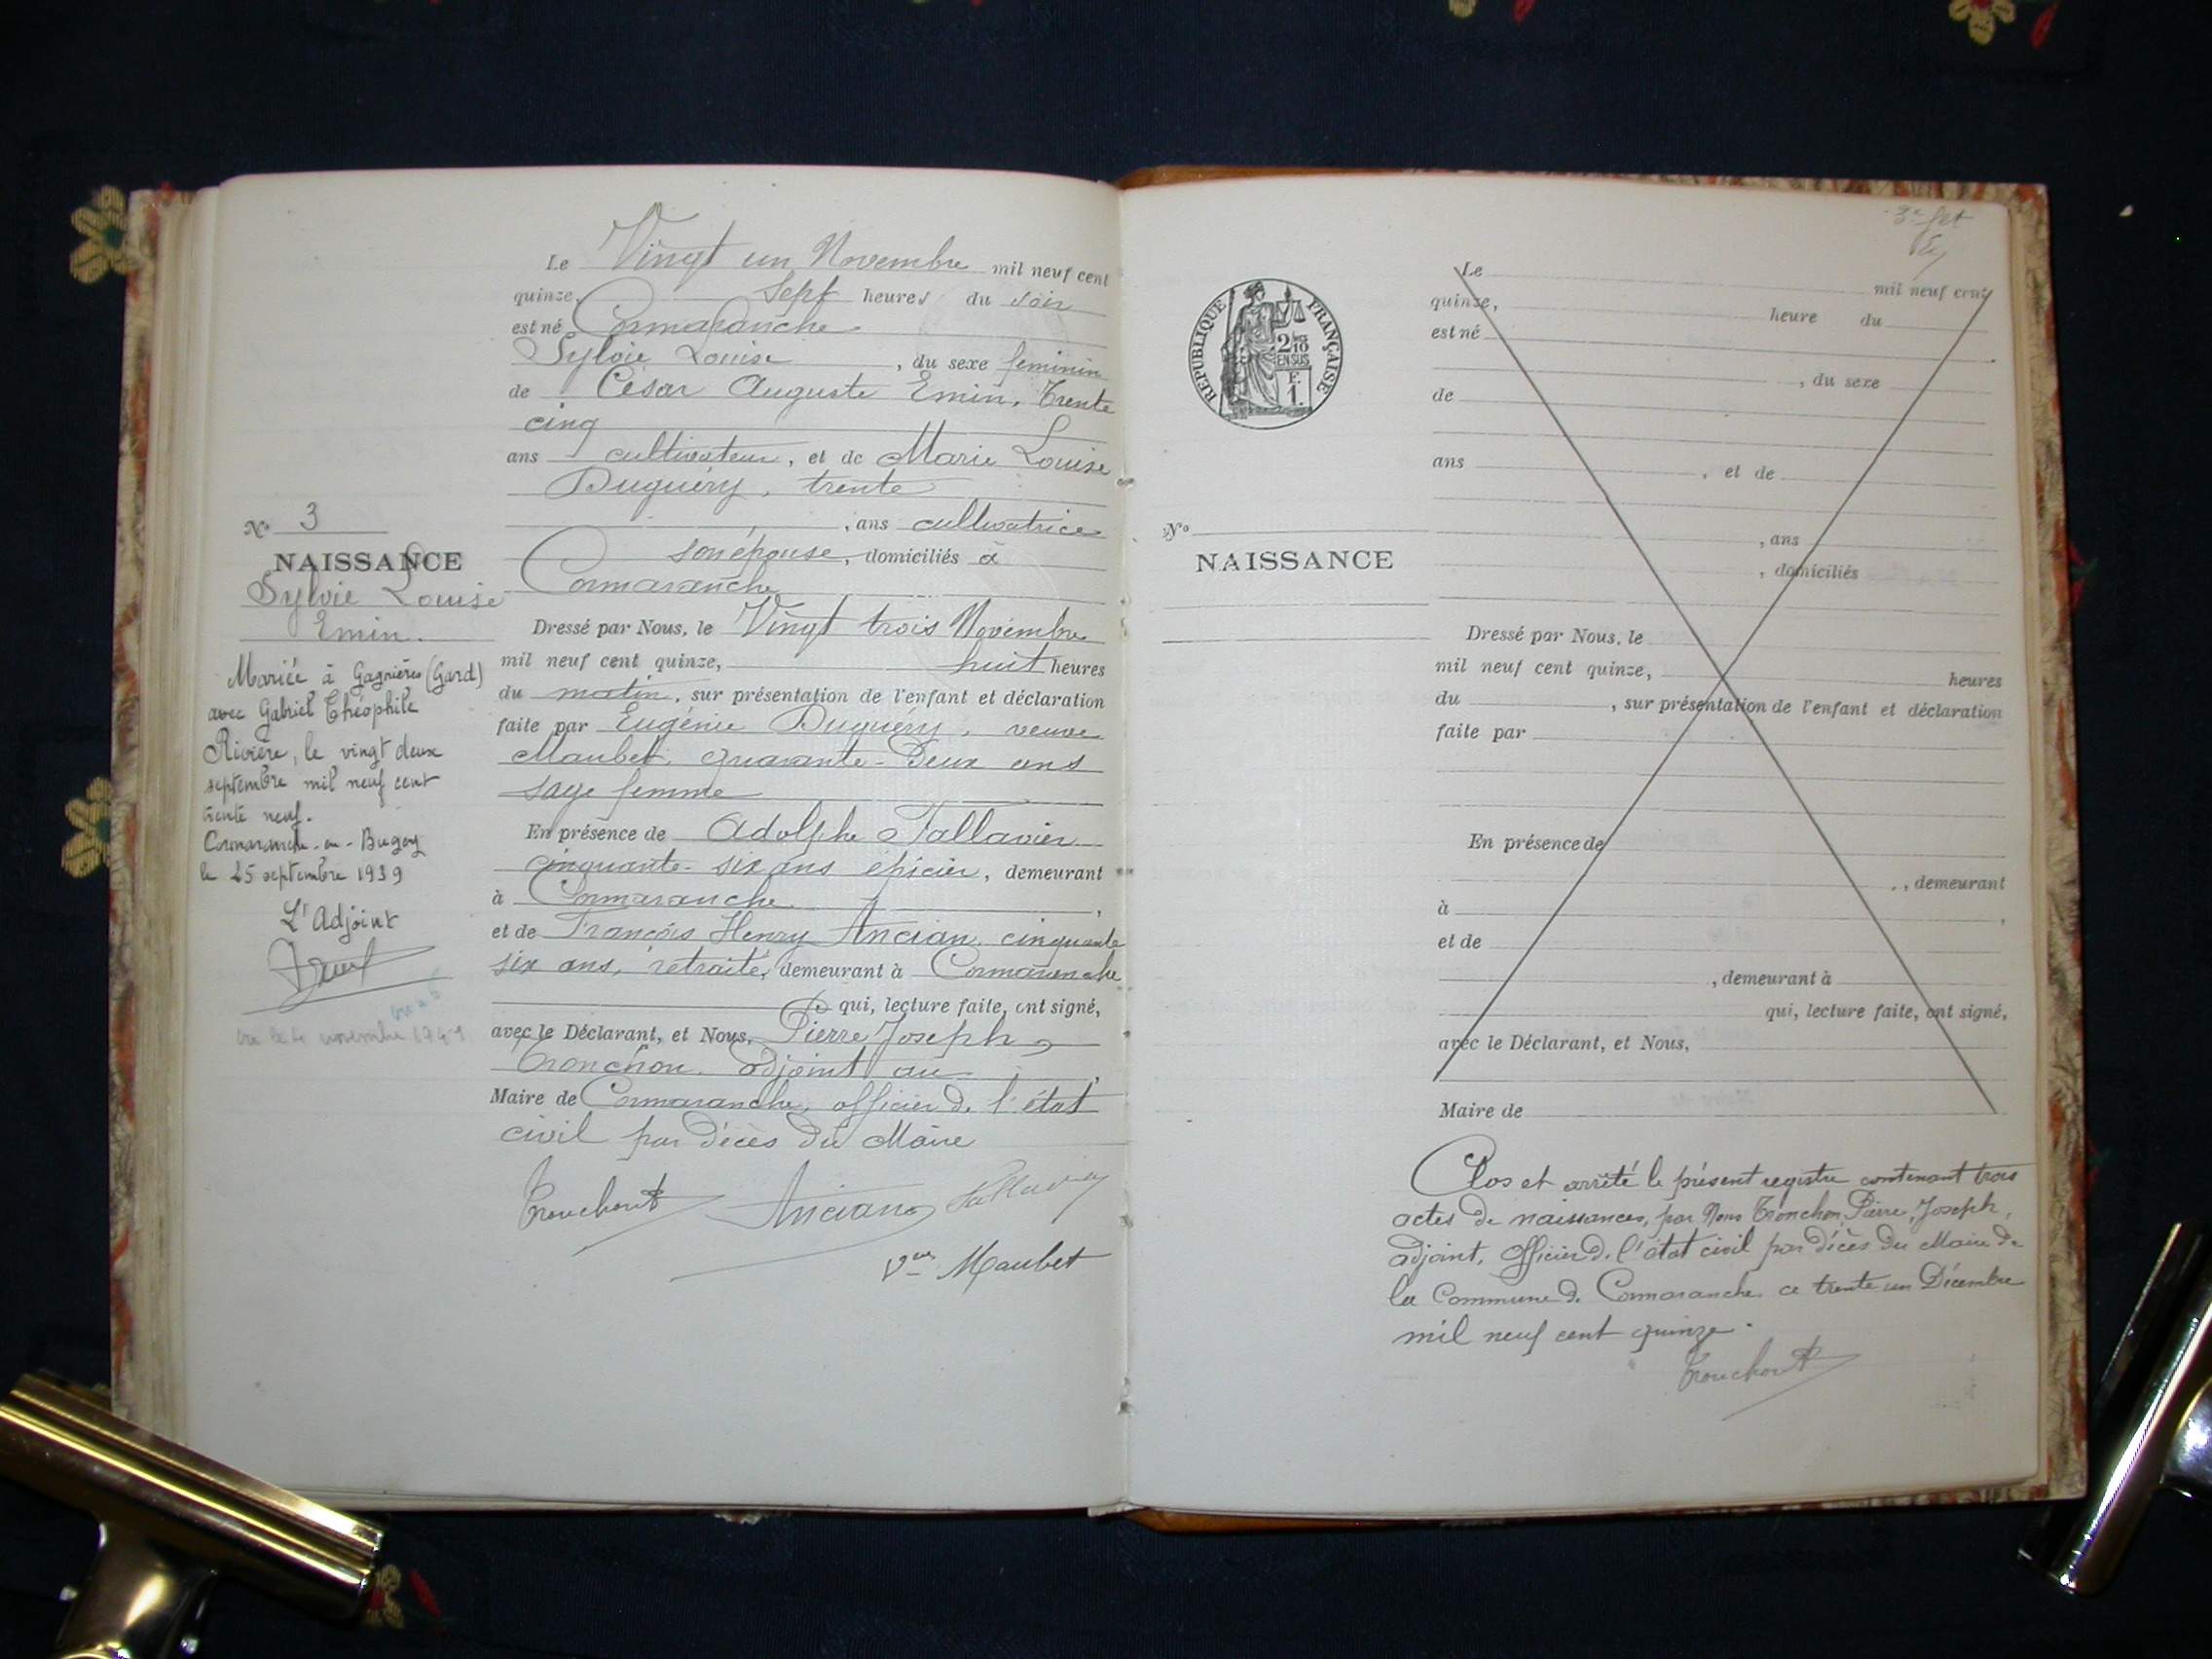 Le Vingt un Novembre mil neuf cent
quinze, sept heures du soir
est né Cormaranche
Sylvie Louise, du sexe feminin
de César Auguste Emin, Trente
cinq
ans cultivateur, et de Marie Louise
Duguény, trente
, ans cultivatrice
son épouse, domiciliés à
Cormaranche
N° 3
NAISSANCE
Sylvie Louise
Emin.
Mariée à Gagnières (Gard)
avec Gabriel Théophile
Rivière, le vingt deux
septembre mil neuf cent
trente neuf.
Cormaranche-en-Bugey
le 25 septembre 1939
L'Adjoint
Dressé par Nous, le Vingt trois Novembre
mil neuf cent quinze, huit heures
du matin, sur présentation de l'enfant et déclaration
faite par Eugénie Duguény, veuve
Maubet, quarante-deux ans
sage femme
En présence de Adolphe Tallavier
cinquante-six ans épicier, demeurant
à Cormaranche,
et de François Henry Ancian, cinquante
six ans, retraité, demeurant à Cormaranche
qui, lecture faite, ont signé,
avec le Déclarant, et Nous, Pierre Joseph
Tronchon, adjoint au,
Maire de Cormaranche, officier de l'état
civil par décès du Maire
Ancian
Vve Maubet
RÉPUBLIQUE FRANÇAISE
2/10
EN SUS
F.
1.
N°
NAISSANCE
Le mil neuf cent
quinze, heure du
est né
, du sexe
de
ans, et de
, ans
, domiciliés
Dressé par Nous, le
mil neuf cent quinze, heures
du, sur présentation de l'enfant et déclaration
faite par
En présence de
, demeurant
à,
et de
, demeurant à
qui, lecture faite, ont signé,
avec le Déclarant, et Nous,
Maire de
Clos et arrêté le présent registre contenant trois
actes de naissances, par Nous Tronchon, Pierre, Joseph,
adjoint, Officier de l'état civil par décès du Maire de
la Commune de Cormaranche ce trente un Décembre
mil neuf cent quinze.